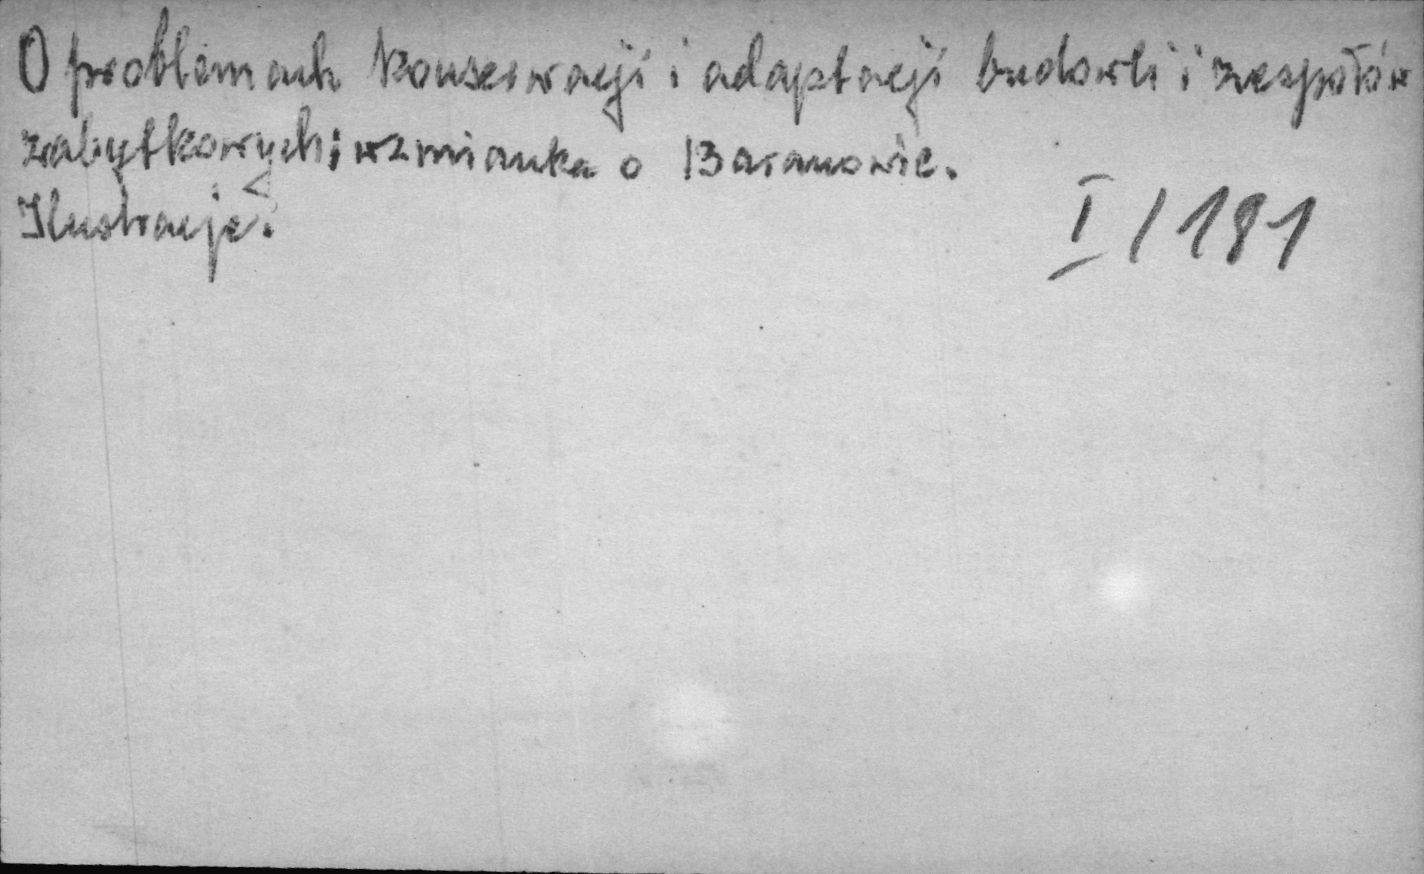 O problemach konserwacji i adaptacji budowli i zespołów
zabytkowych; wzmianka o Baranowie.
Ilustracje.
I / 191